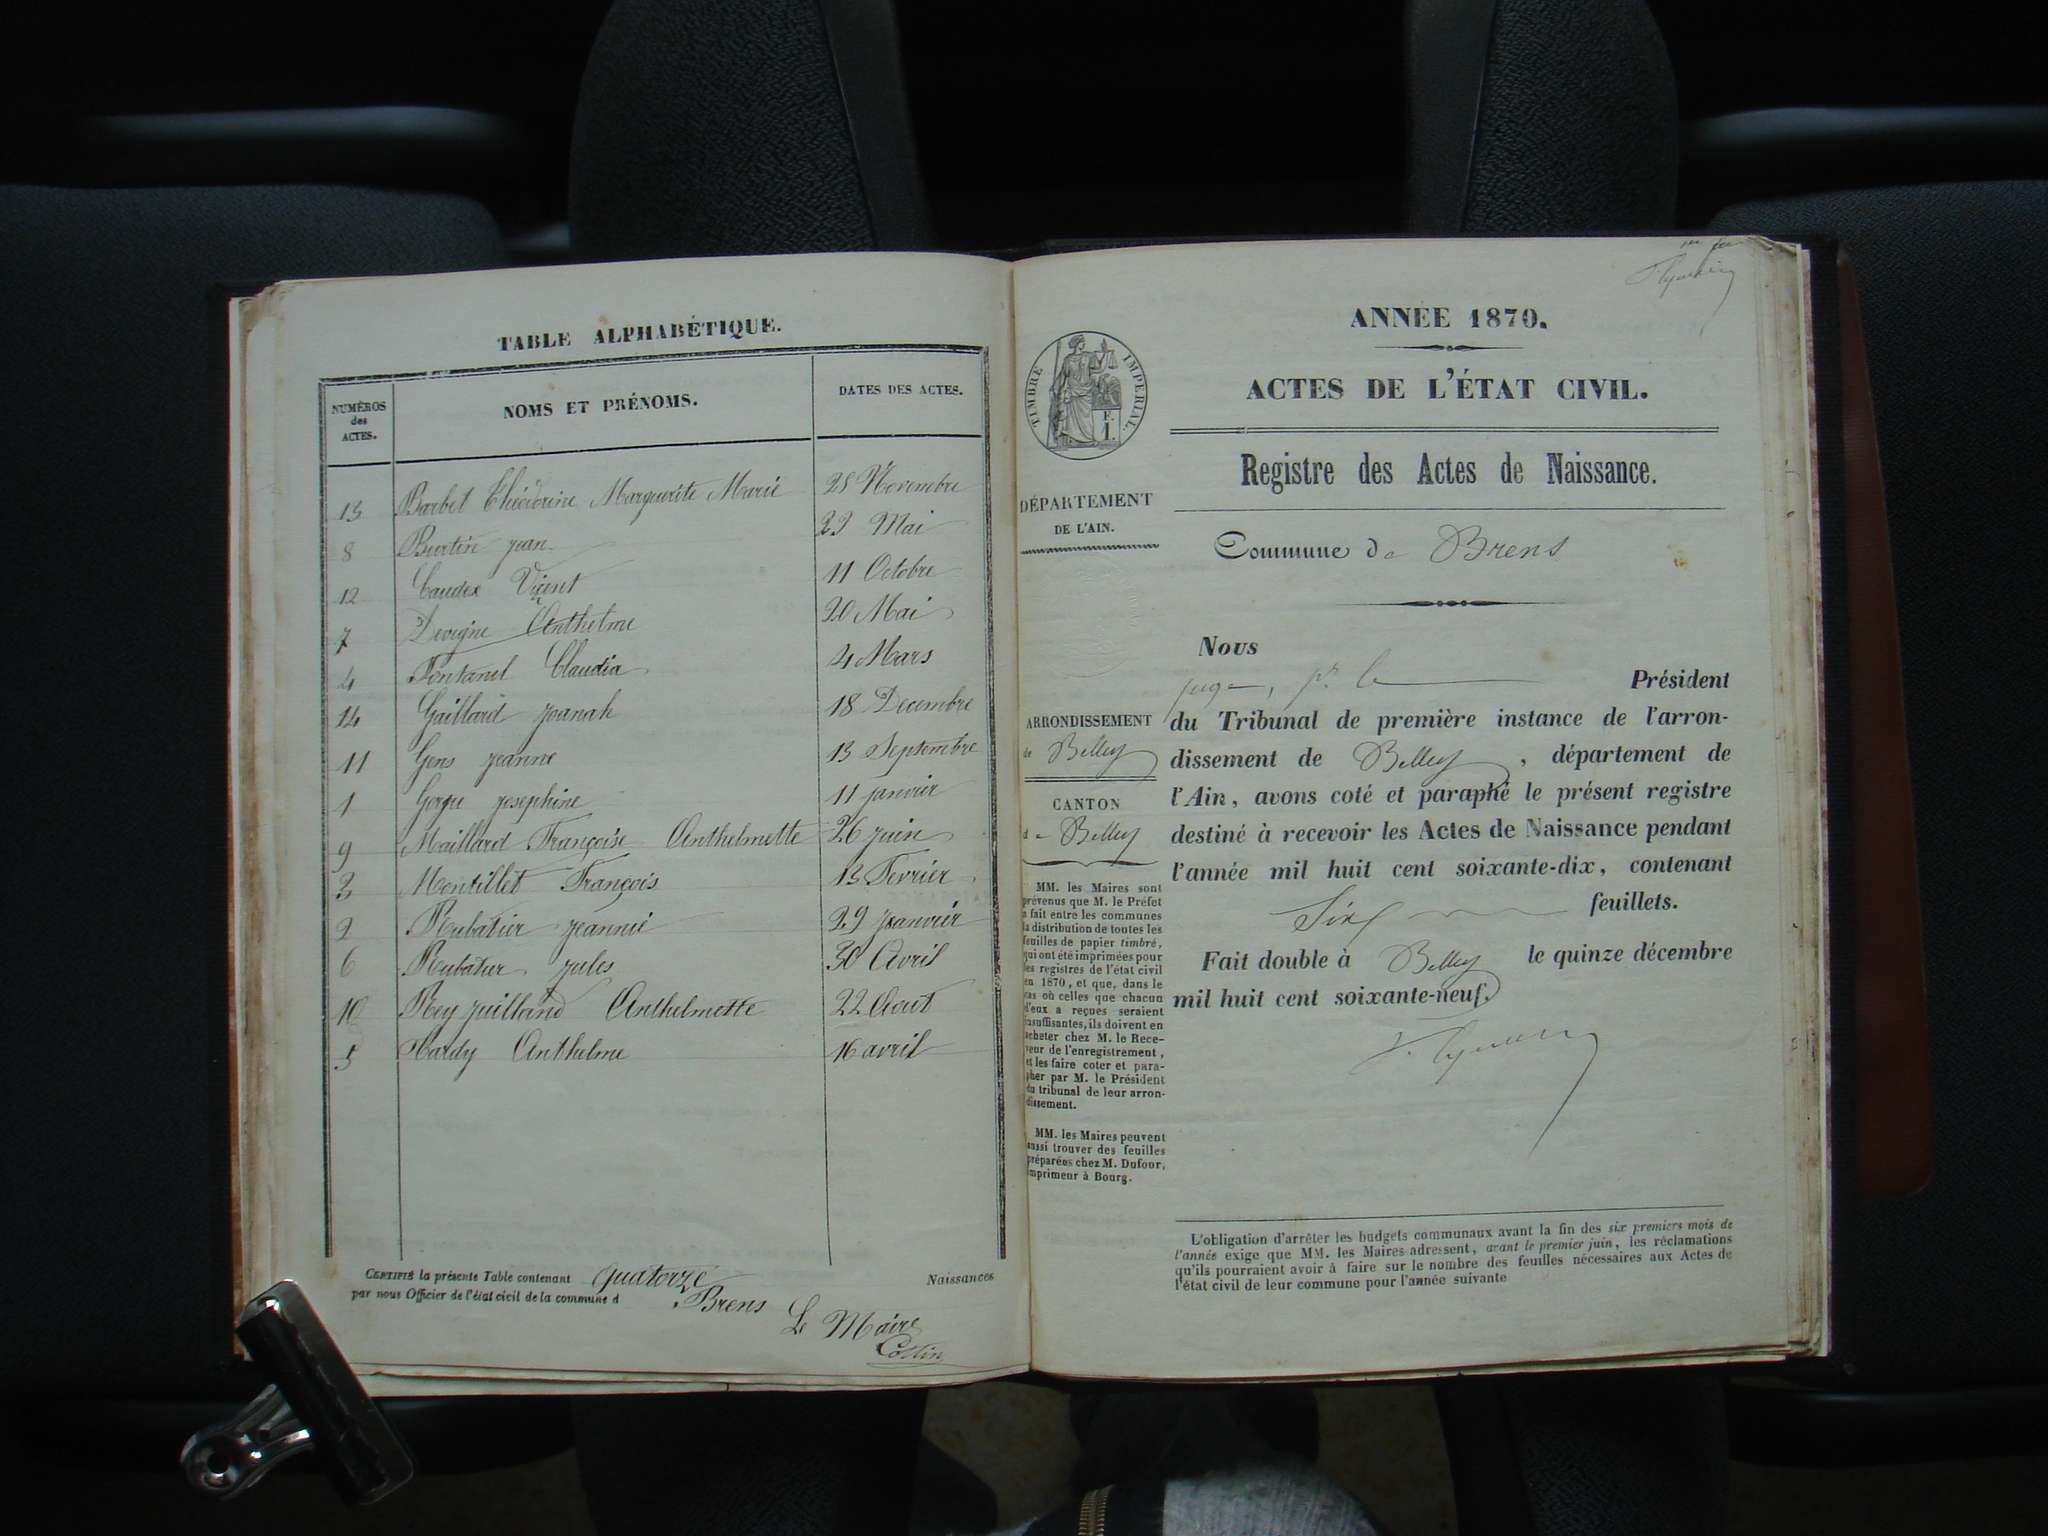 TABLE ALPHABÉTIQUE.
NUMÉROS des ACTES. NOMS ET PRÉNOMS. DATES DES ACTES.
13 Barbet Théodorine Marguerite Marie 28 Novembre
8 Burtin jean 22 Mai
12 Caudex Vicent 11 Octobre
7 Devigne Anthelme 20 Mai
4 Fontanel Claudia 4 Mars
14 Gaillard jeanah 18 Decembre
11 Gens jeanne 13 Septembre
1 josephine 11 janvier
9 Maillard Françoise Anthelmette 26 juin
3 Montillet François 13 Fevrier
2 Rubatier jeannie 29 janvier
6 Rubatier jules 30 Avril
10 Rey juilland Anthelmette 22 Aout
5 Tardy Anthelme 16 avril
CERTIFIÉ la présente Table contenant quatorze Naissances
par nous Officier de l'état civil de la commune d Brens
Le Maire
Collin
ANNÉE 1870.
ACTES DE L'ÉTAT CIVIL.
Registre des Actes de Naissance.
TIMBRE IMPERIAL.
F. I.
DÉPARTEMENT
DE L'AIN.
Commune de Brens
ARRONDISSEMENT
de Belley
CANTON
de Belley
MM. les Maires sont
prévenus que M. le Préfet
a fait entre les communes
la distribution de toutes les
feuilles de papier timbré,
qui ont été imprimées pour
les registres de l'état civil
en 1870, et que, dans le
cas où celles que chacun
d'eux a reçues seraient
insuffisantes, ils doivent en
acheter chez M. le Rece-
veur de l'enregistrement,
et les faire coter et para-
pher par M. le Président
du tribunal de leur arron-
dissement.
MM. les Maires peuvent
aussi trouver des feuilles
préparées chez M. Dufour,
imprimeur à Bourg.
Nous
juge, pr. le Président
du Tribunal de première instance de l'arron-
dissement de Belley, département de
l'Ain, avons coté et paraphé le présent registre
destiné à recevoir les Actes de Naissance pendant
l'année mil huit cent soixante-dix, contenant
Six feuillets.
Fait double à Belley le quinze décembre
mil huit cent soixante-neuf.
L'obligation d'arrêter les budgets communaux avant la fin des six premiers mois de
l'année exige que MM. les Maires adressent, avant le premier juin, les réclamations
qu'ils pourraient avoir à faire sur le nombre des feuilles nécessaires aux Actes de
l'état civil de leur commune pour l'année suivante